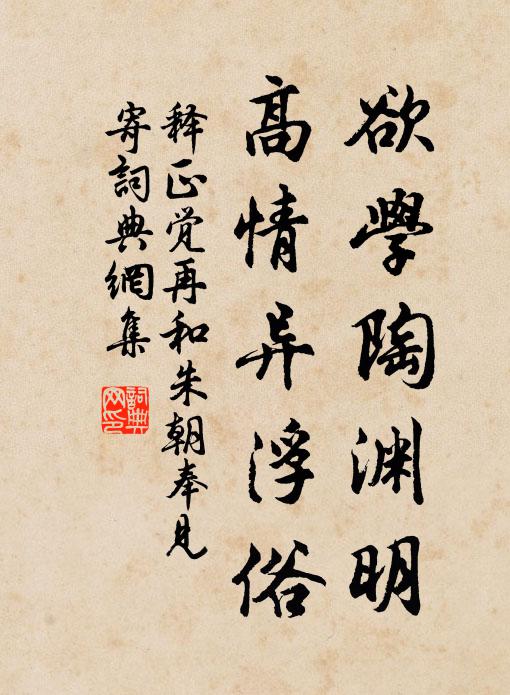 欲學陶渊明
高情异浮俗
释正觉再和朱朝奉见
寄詞典網集
詞典网印